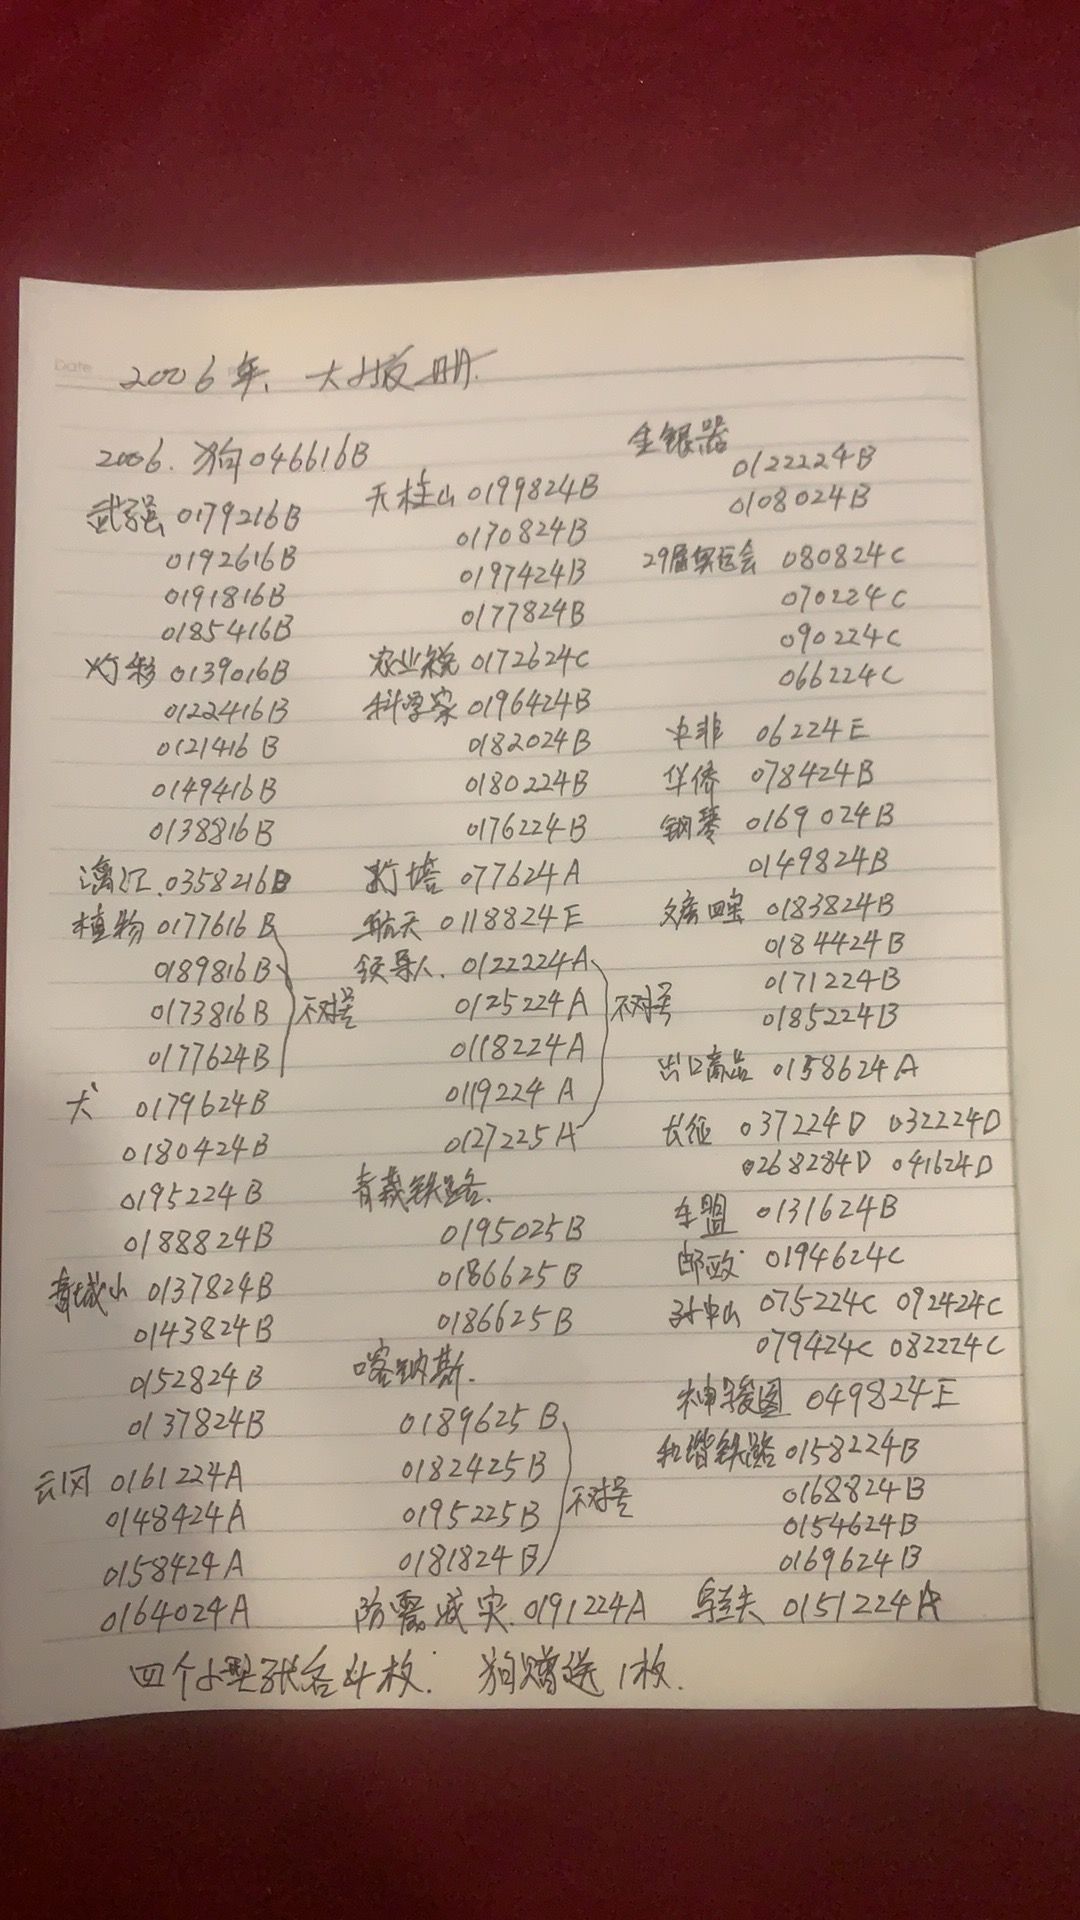 Date
2006年、大版册.
2006. 狗046616B
武强 0179216B
0192616B
0191816B
0185416B
灯彩 0139016B
0122416B
0121416B
0149416B
0138816B
漓江.0358216B
植物 0177616B
0189816B
0173816B 不对号
0177624B
犬 0179624B
0180424B
0195224B
0188824B
青城山 0137824B
0143824B
0152824B
0137824B
云冈 0161224A
0148424A
0158424A
0164024A
天柱山 0199824B
0170824B
0197424B
0177824B
农业税 0172624C
科学家 0196424B
0182024B
0180224B
0176224B
灯塔 077624A
航天 0118824E
领导人. 0122224A
0125224A 不对号
0118224A
0119224A
0127225A
青藏铁路.
0195025B
0186625B
0186625B
喀纳斯.
0189625B
0182425B
0195225B 不对号
0181824B
防震减灾.0191224A
金银器
0122224B
0108024B
29届奥运会 080824C
070224C
090224C
066224C
中非 06224E
华侨 078424B
钢琴 0169024B
0149824B
文房四宝 0183824B
0184424B
0171224B
0185224B
出口商品 0158624A
长征 037224D 032224D
0268284D 041624D
东盟 0131624B
邮政 0194624C
孙中山 075224C 092424C
079424C 082224C
神骏图 049824E
和谐铁路 0158224B
0168824B
0154624B
0169624B
0151224A
四个小型张各4枚. 狗赠送1枚.